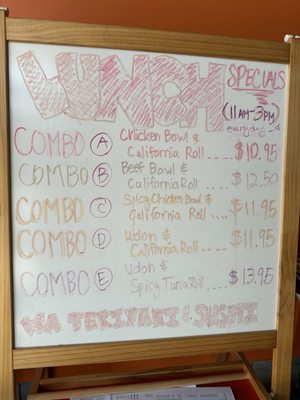 LUNCH SPECIALS
(11AM-3PM)
everyday
COMBO A Chicken Bowl &
California Roll .... $10.95
COMBO B Beef Bowl &
California Roll .... $12.50
COMBO C Spicy Chicken Bowl &
California Roll .... $11.95
COMBO D Udon &
California Roll .... $11.95
COMBO E Udon &
Spicy Tuna Roll .... $13.95
TERIYAKI & SUSHI